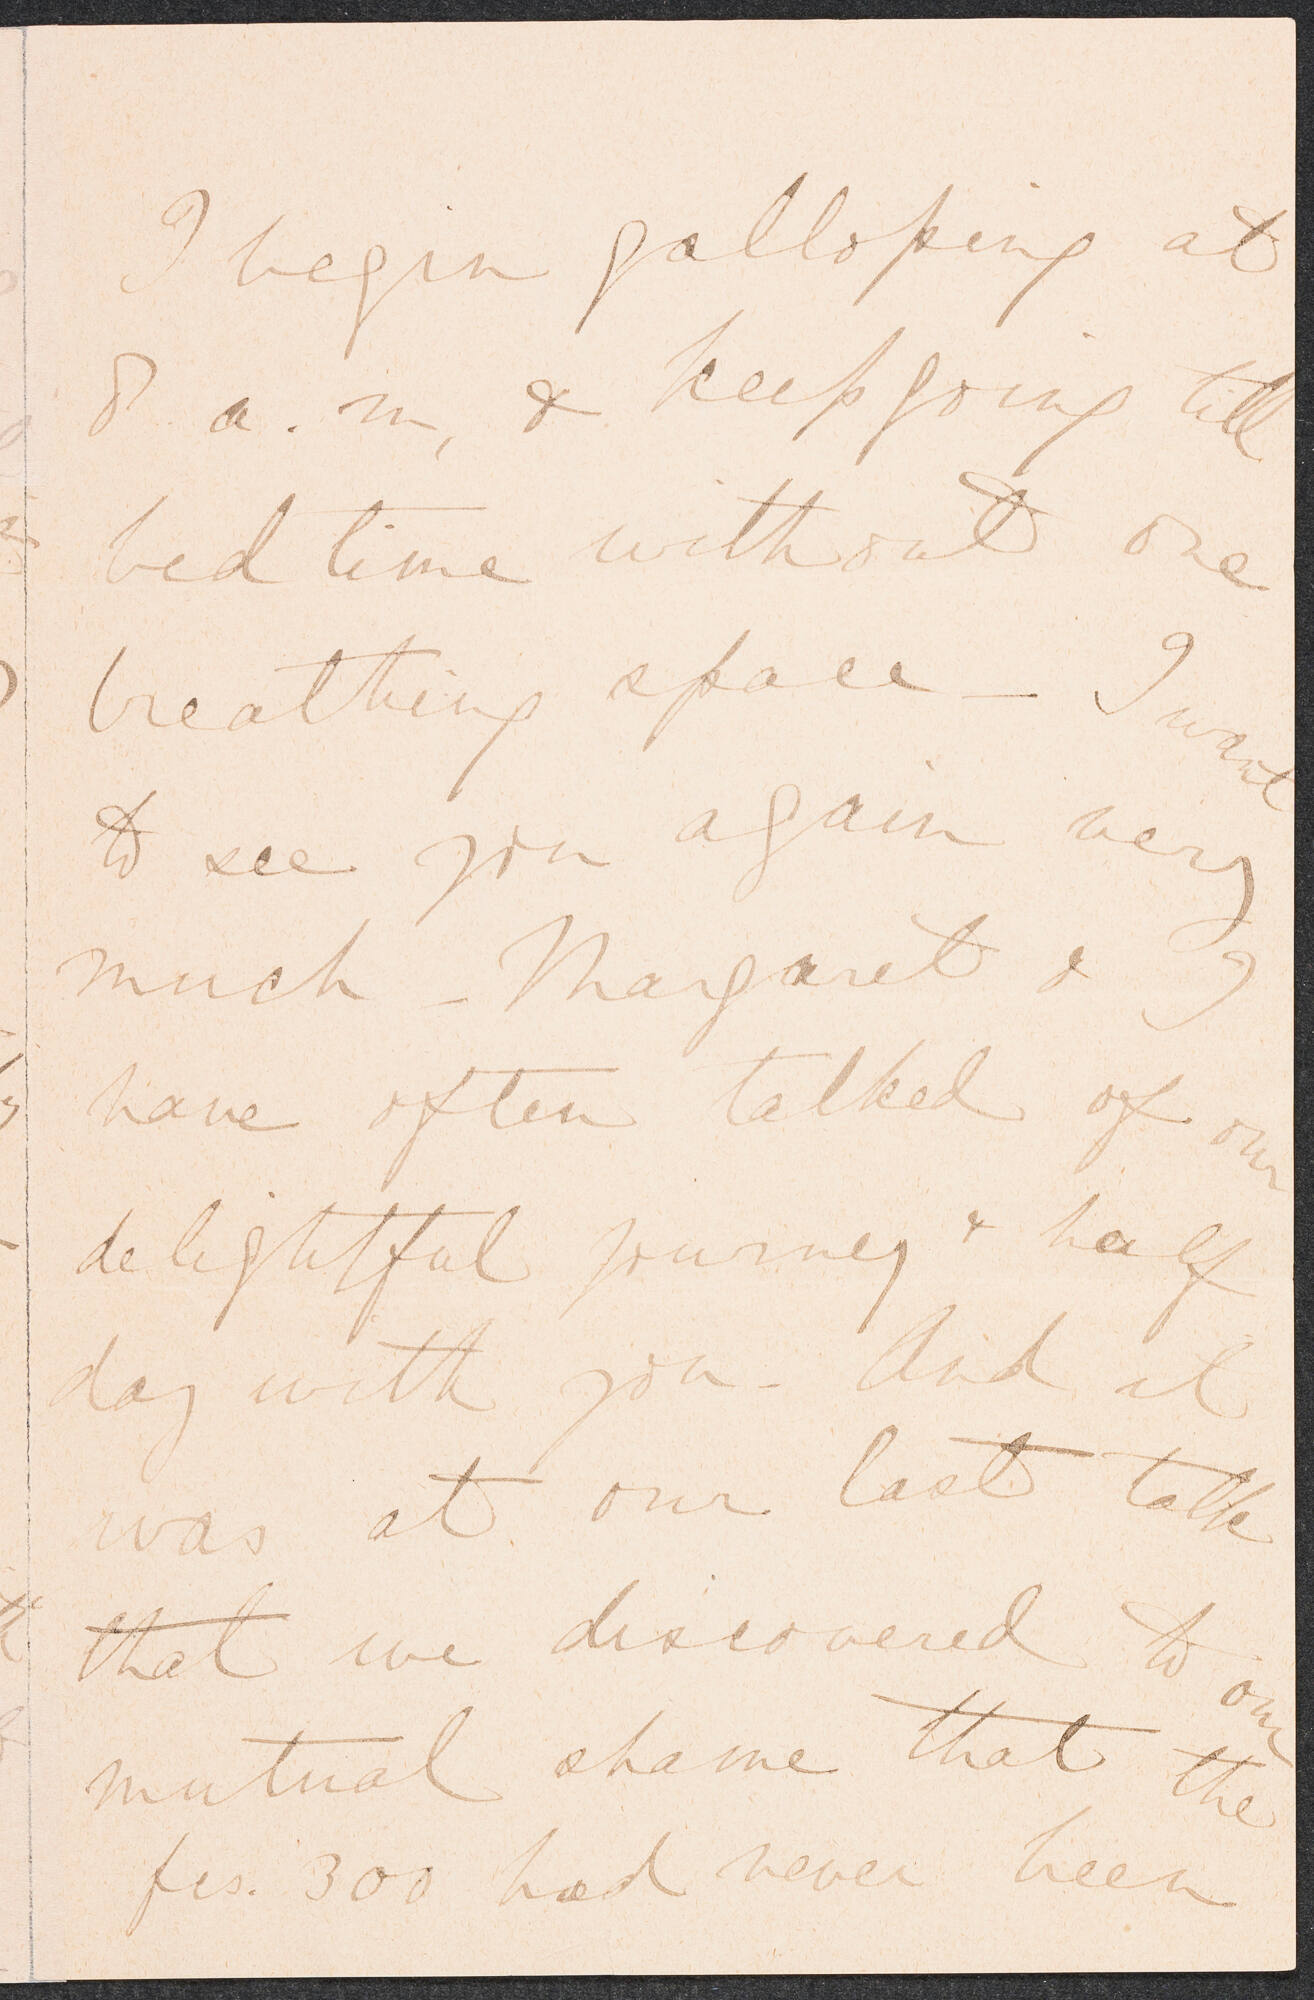 I begin galloping at
8 a.m, & keep going till
bed time without one
breathing space — I want
to see you again very
much — Margaret & I
have often talked of our
delightful journey & half
day with you — And it
was at our last talk
that we discovered to our
mutual shame that the
frs. 300 had never been